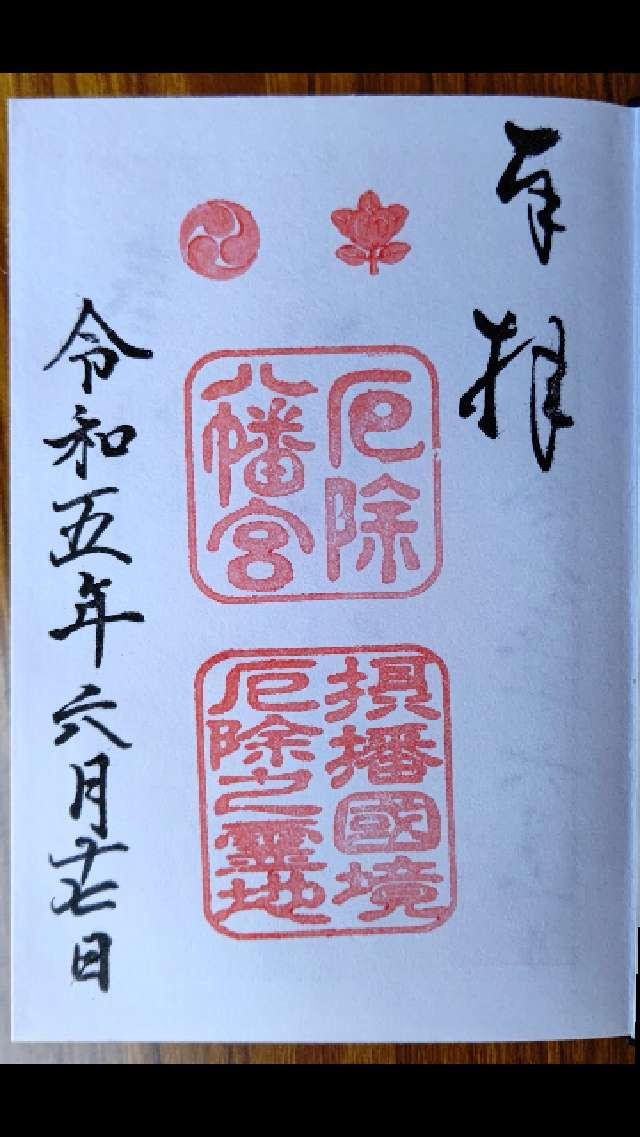 奉拝
厄除
八幡宮
摂播國境
厄除之霊地
令和五年六月十七日